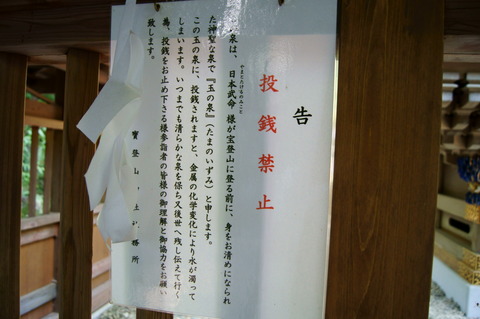 告
投銭禁止
泉は、日本武命様が宝登山に登る前に、身をお清めになられ
やまとたけるのみこと
た神聖な泉で『玉の泉』(たまのいずみ)と申します。
この玉の泉に、投銭されますと、金属の化学変化により水が濁って
しまいます。いつまでも清らかな泉を保ち又後世へ残し伝えて行く
為、投銭をお止め下さる様参詣者の皆様の御理解と御協力をお願い
致します。
寶登山 務所